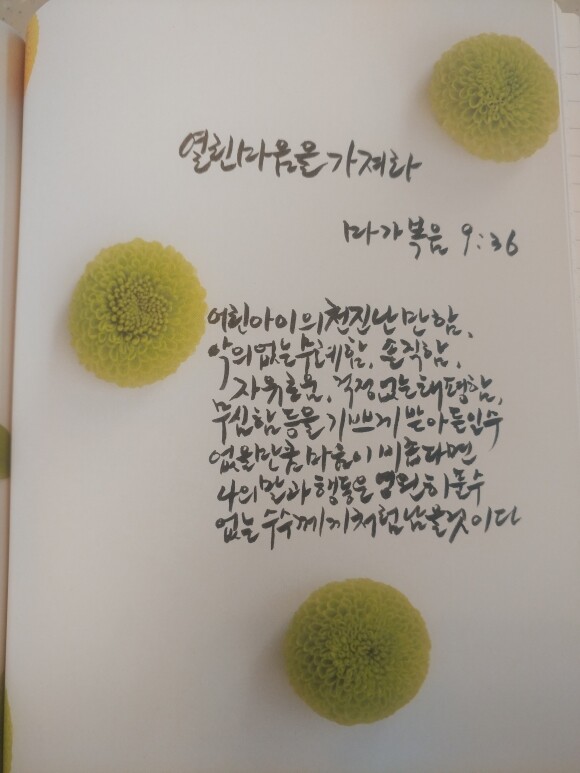 열린마음을 가져라
마가복음 9:36
어린아이의 천진난만함,
악의없는 무례함, 솔직함,
자유로움, 걱정없는 태평함,
무심함 등을 기쁘게 받아들일수
없을만큼 마음이 비좁다면
나의 말과 행동은 영원히 풀수
없는 수수께끼처럼 남을것이다